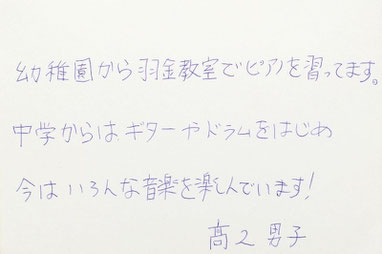 幼稚園から羽金教室でピアノを習ってます。
中学からは、ギターやドラムをはじめ
今はいろんな音楽を楽しんでいます!
高2 男子